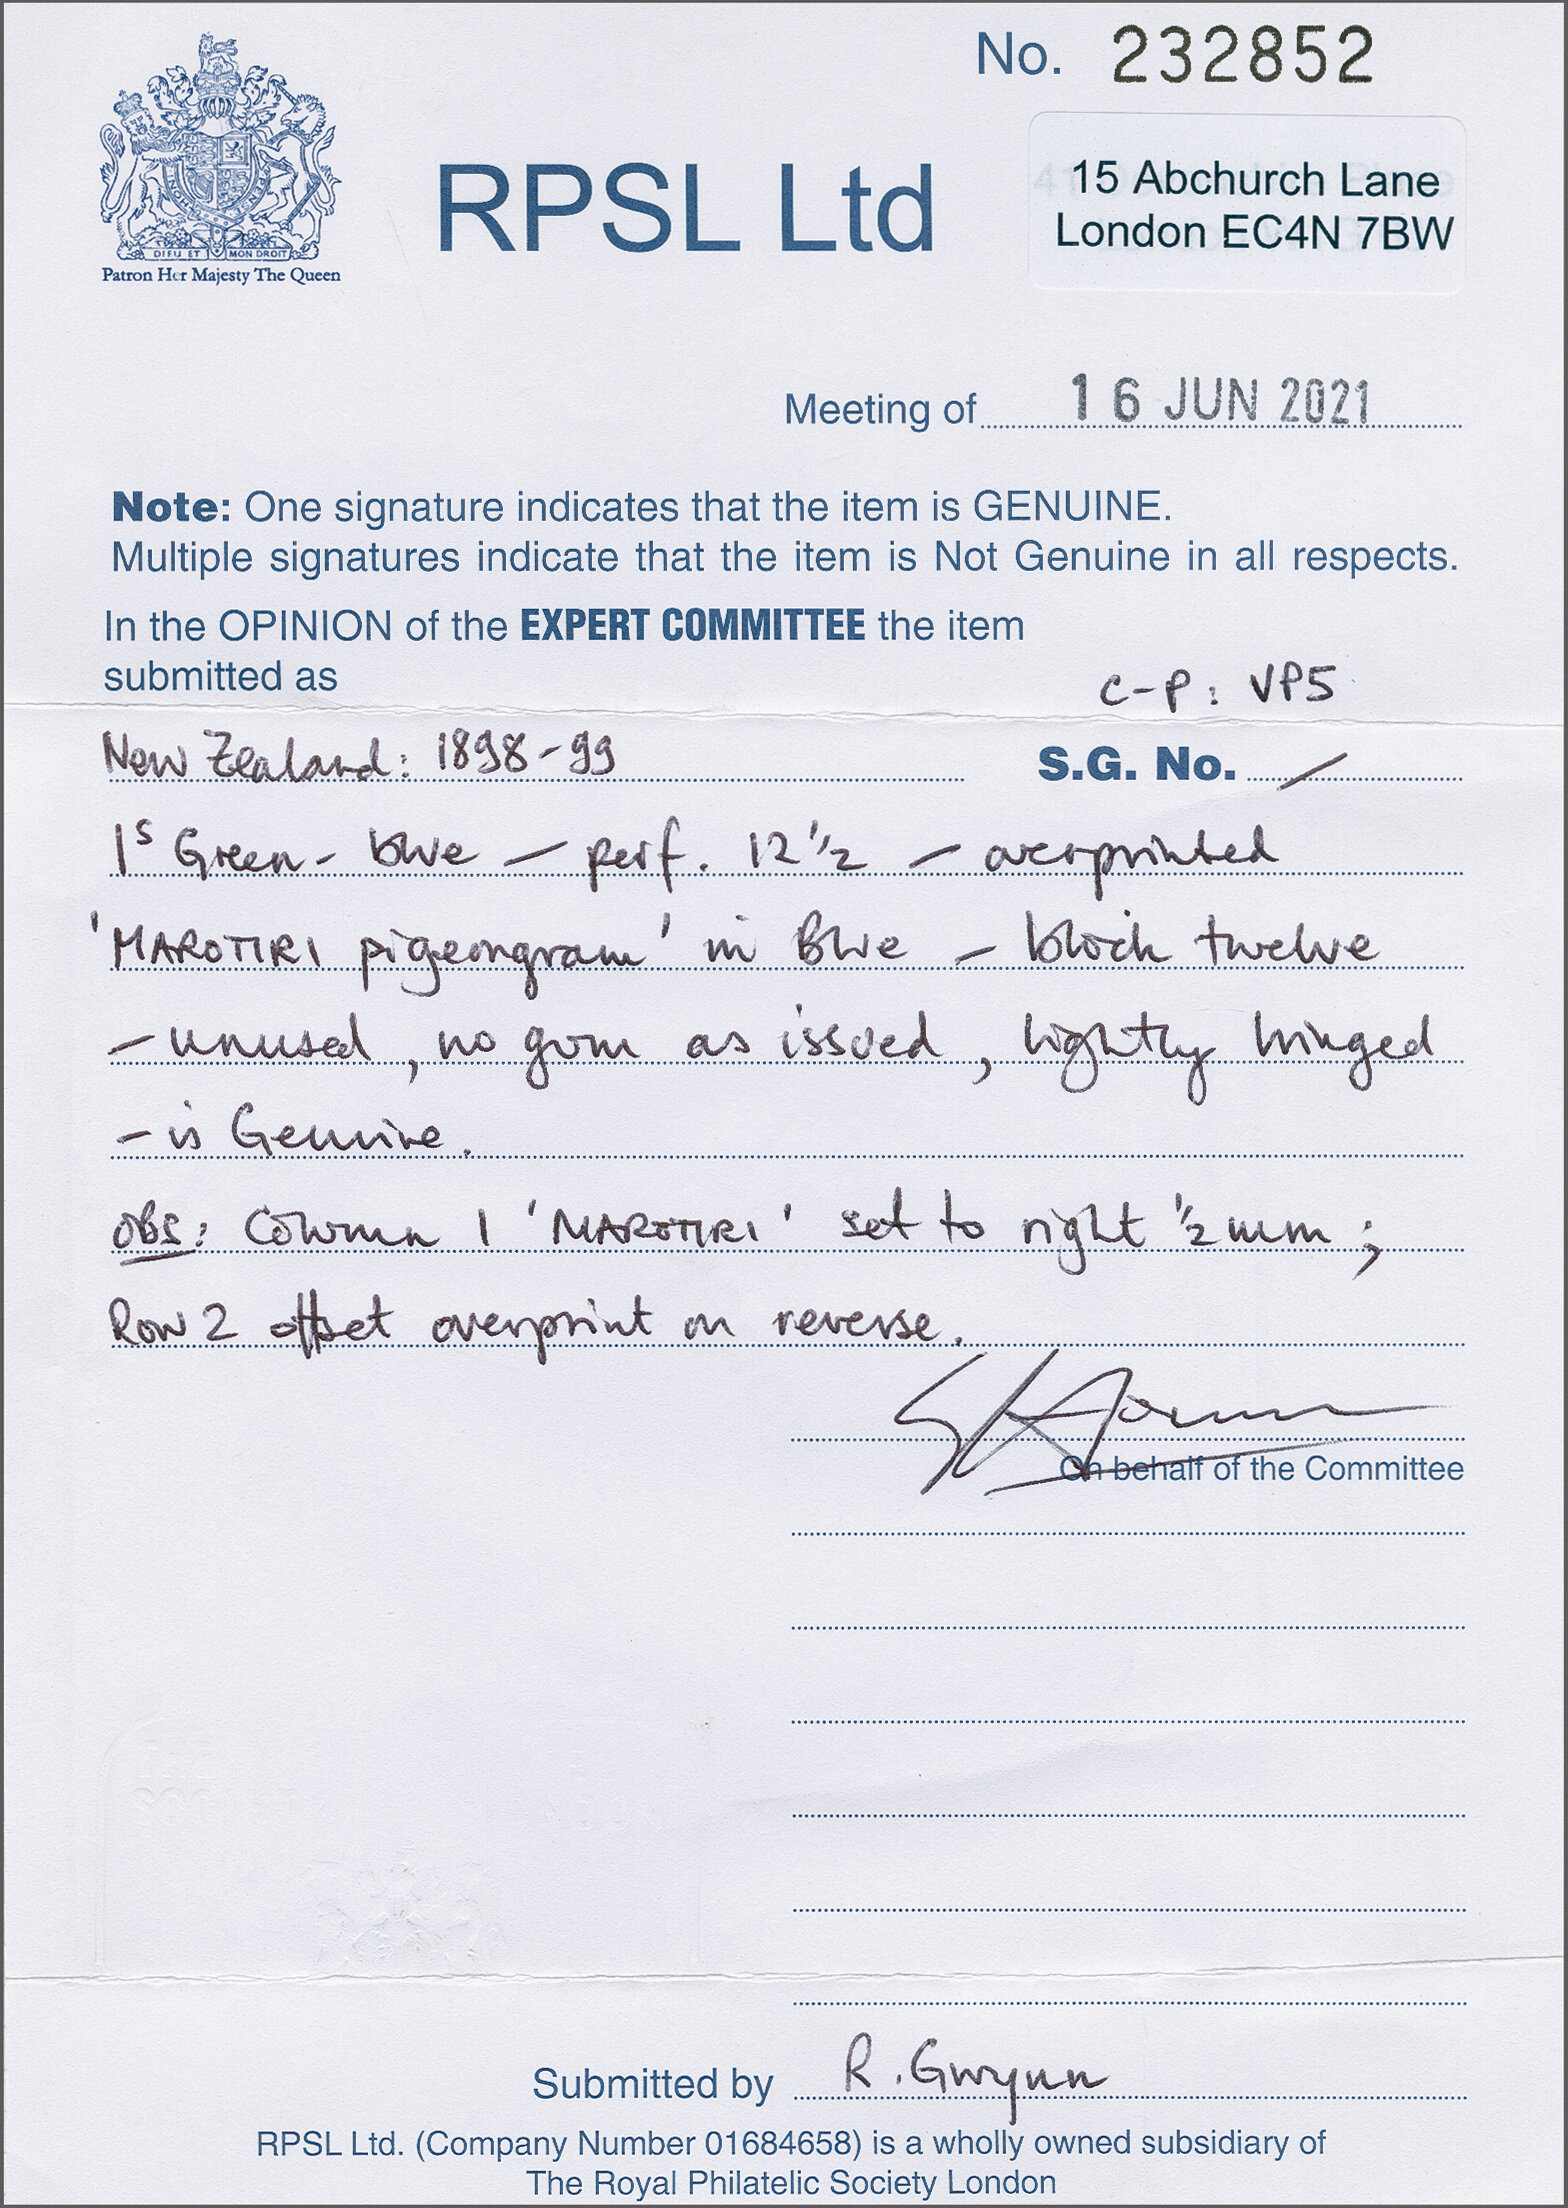 No. 232852
15 Abchurch Lane
London EC4N 7BW
RPSL Ltd
DIEU ET MON DROIT
Patron Her Majesty The Queen
Meeting of 16 JUN 2021
Note: One signature indicates that the item is GENUINE.
Multiple signatures indicate that the item is Not Genuine in all respects.
In the OPINION of the EXPERT COMMITTEE the item
submitted as
C-P: VP5
New Zealand: 1898-99 S.G. No. /
1s Green-blue — perf. 12½ — overprinted
'MAROTIRI pigeongram' in Blue — block twelve
— unused, no gum as issued, lightly hinged
— is Genuine.
Obs: Column 1 'MAROTIRI' set to right ½mm;
Row 2 offset overprint on reverse.
On behalf of the Committee
Submitted by R. Gwynn
RPSL Ltd. (Company Number 01684658) is a wholly owned subsidiary of
The Royal Philatelic Society London